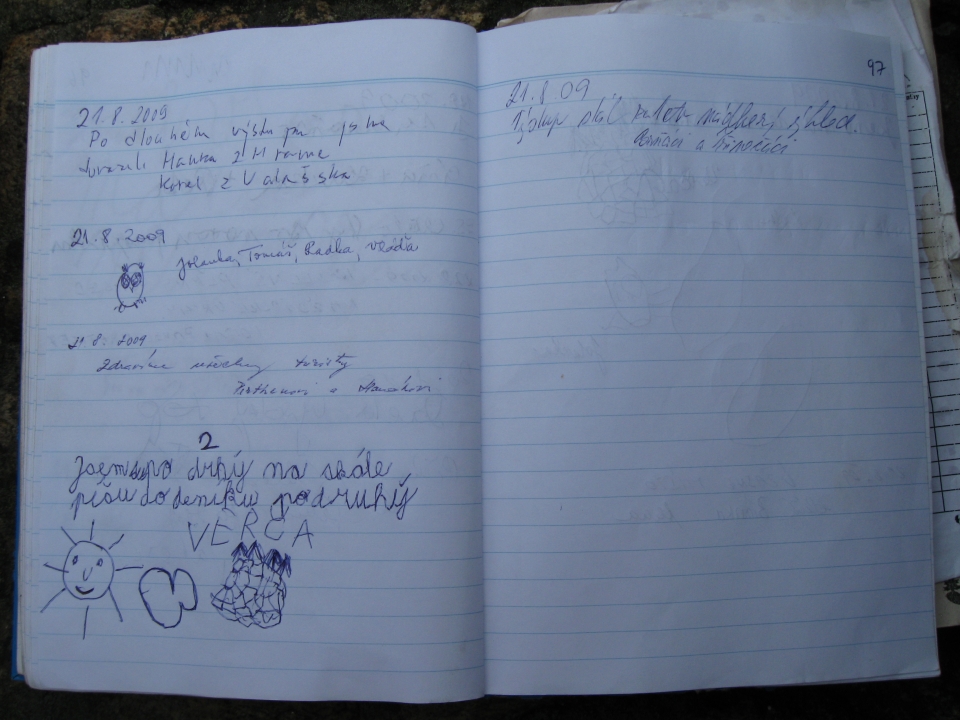 21.8.2009
Po dlouhém výstupu jsme
dorazili Hanka z Hranic
Karel z Valašska
21.8.2009
Tomáš, Radka, Vláďa
21.8.2009
Zdravíme všechny turisty
a
2
Jsem po drhý na skále
píšu do deníku podruhý
VERČA
97
21.8 09
Výstup stál za to nádherný výhled.
a